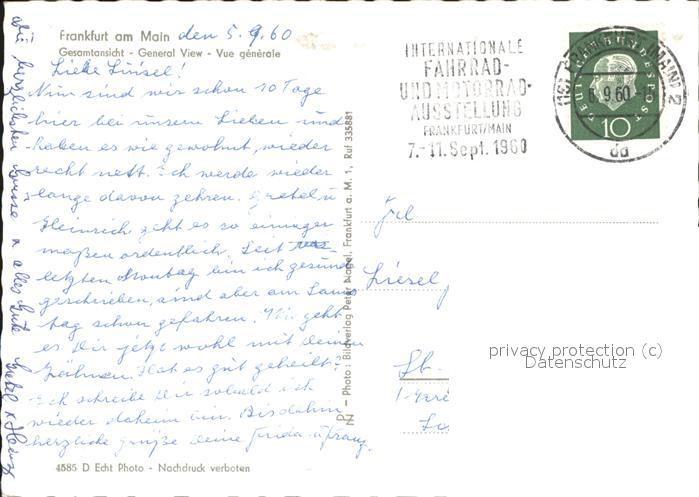 Frankfurt am Main den 5.9.60
Gesamtansicht - General View - Vue générale
Liebe Liesel!
Nun sind wir schon 10 Tage
hier bei unsern Lieben und
haben es wie gewohnt, wieder
recht nett. Ich werde wieder
lange davon zehren. Gretel u
Heinrich geht es so einiger
maßen ordentlich. Seit
letzten Montag bin ich gesund
geschrieben, sind aber am Sams
tag schon gefahren. Wie geht
es Dir jetzt wohl mit Deinen
Zähnen. Hat es gut geheilt?
Ich schreibe Dir sobald ich
wieder daheim bin. Bis dahin
herzliche Grüße Deine Frida u Franz.
4585 D Echt Photo - Nachdruck verboten
Die herzlichsten Grüsse u alles Gute Gretel u Heinz
Photo: Bildverlag Peter Nagel, Frankfurt a. M. 1, Ruf 335881
INTERNATIONALE
FAHRRAD-
UND MOTORRAD-
AUSSTELLUNG
FRANKFURT/MAIN
7.-11. Sept. 1960
(16) FRANKFURT (MAIN) 2
6.9.60
da
DEUTSCHE BUNDESPOST
10
Frl
Liesel
privacy protection (c)
Datenschutz